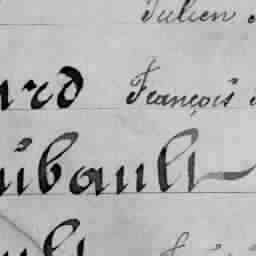 Julien
ard François
ibault
ult